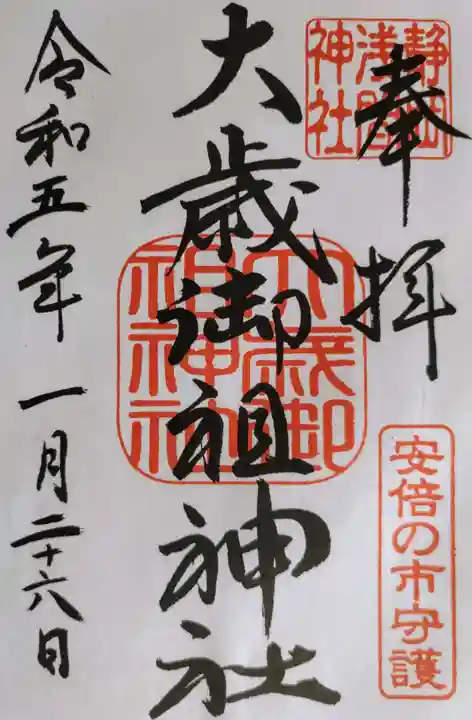 奉拝
静岡
浅間
神社
安倍の市守護
大歳御祖神社
大歳御
祖神社
令和五年 一月二十六日